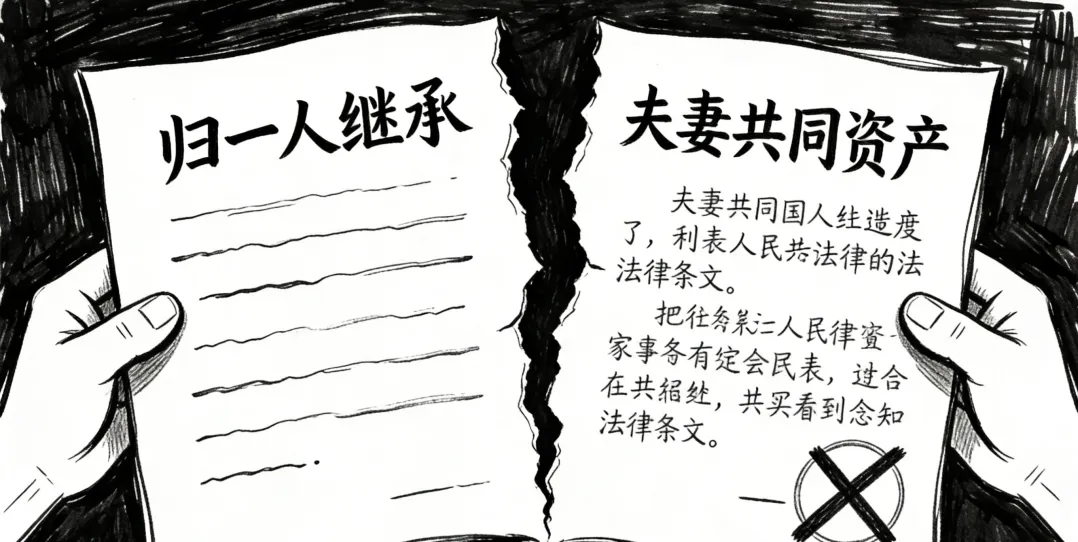 归一人继承
夫妻共同资产
夫妻共同国人纣造度
了，利表人民共法律的法
法律条文。
把往务 人民律资
家事务有定会民表，过合
在共 ，共买看到念知
法律条文。